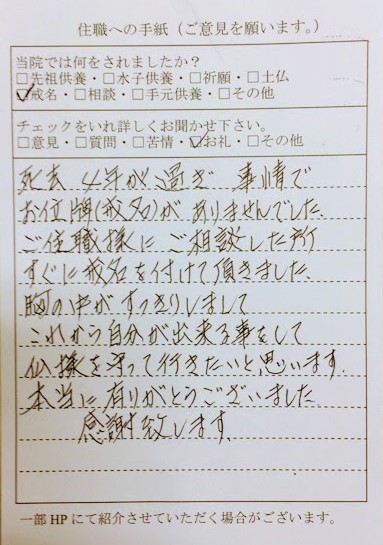 住職への手紙（ご意見を願います。）
当院では何をされましたか？
□先祖供養・□水子供養・□祈願・□土仏
☑戒名・□相談・□手元供養・□その他
チェックをいれ詳しくお聞かせ下さい。
□意見・□質問・□苦情・☑お礼・□その他
死去 4年が過ぎ 事情で
お位牌(戒名)がありませんでした、
ご住職様にご相談した所
すぐに戒名を付けて頂きました、
胸の中がすっきりしまして
これから自分が出来る事をして
仏様を守って行きたいと思います.
本当に有りがとうございました
感謝致します、
一部HPにて紹介させていただく場合がございます。